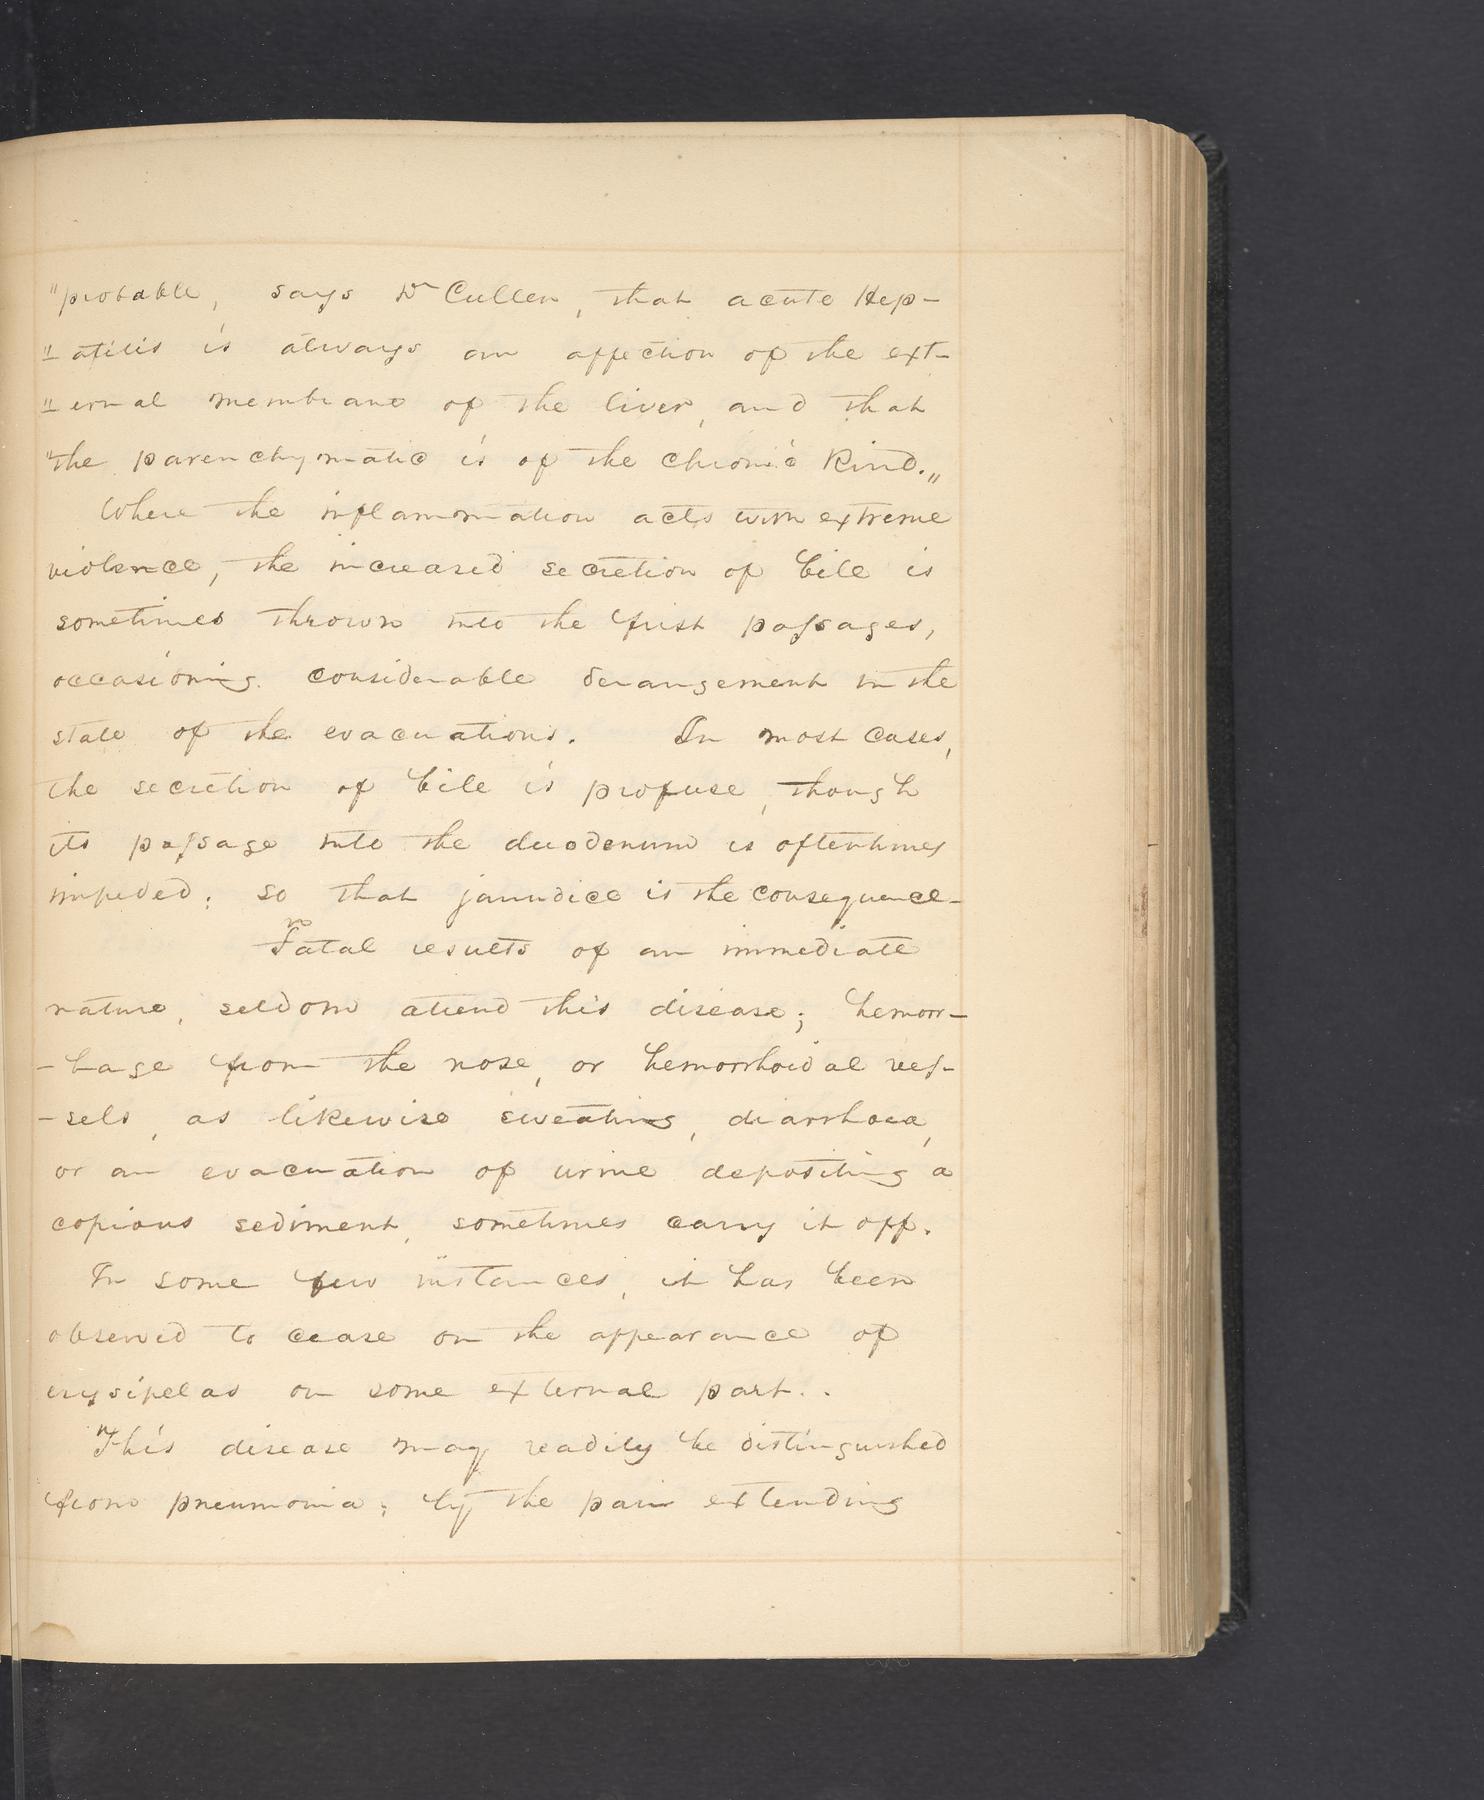 "probable, says Dr Cullen, that acute Hep-
"-atitis is always an affection of the ext-
"-ernal membrane of the liver, and that
"the parenchymatic is of the chronic kind."
Where the inflammation acts with extreme
violence, the increased secretion of bile is
sometimes thrown into the first passages,
occasioning considerable derangement in the
state of the evacuations. In most cases,
the secretion of bile is profuse, though
its passage into the duodenum is oftentimes
impeded; so that jaundice is the consequence-
Fatal results of an immediate
nature, seldom attend this disease; hemorr-
-hage from the nose, or hemorrhoidal ves-
-sels, as likewise sweating, diarrhoea,
or an evacuation of urine depositing a
copious sediment, sometimes carry it off.
In some few instances, it has been
observed to cease on the appearance of
erysipelas on some external part..
This disease may readily be distinguished
from pneumonia; by the pain extending